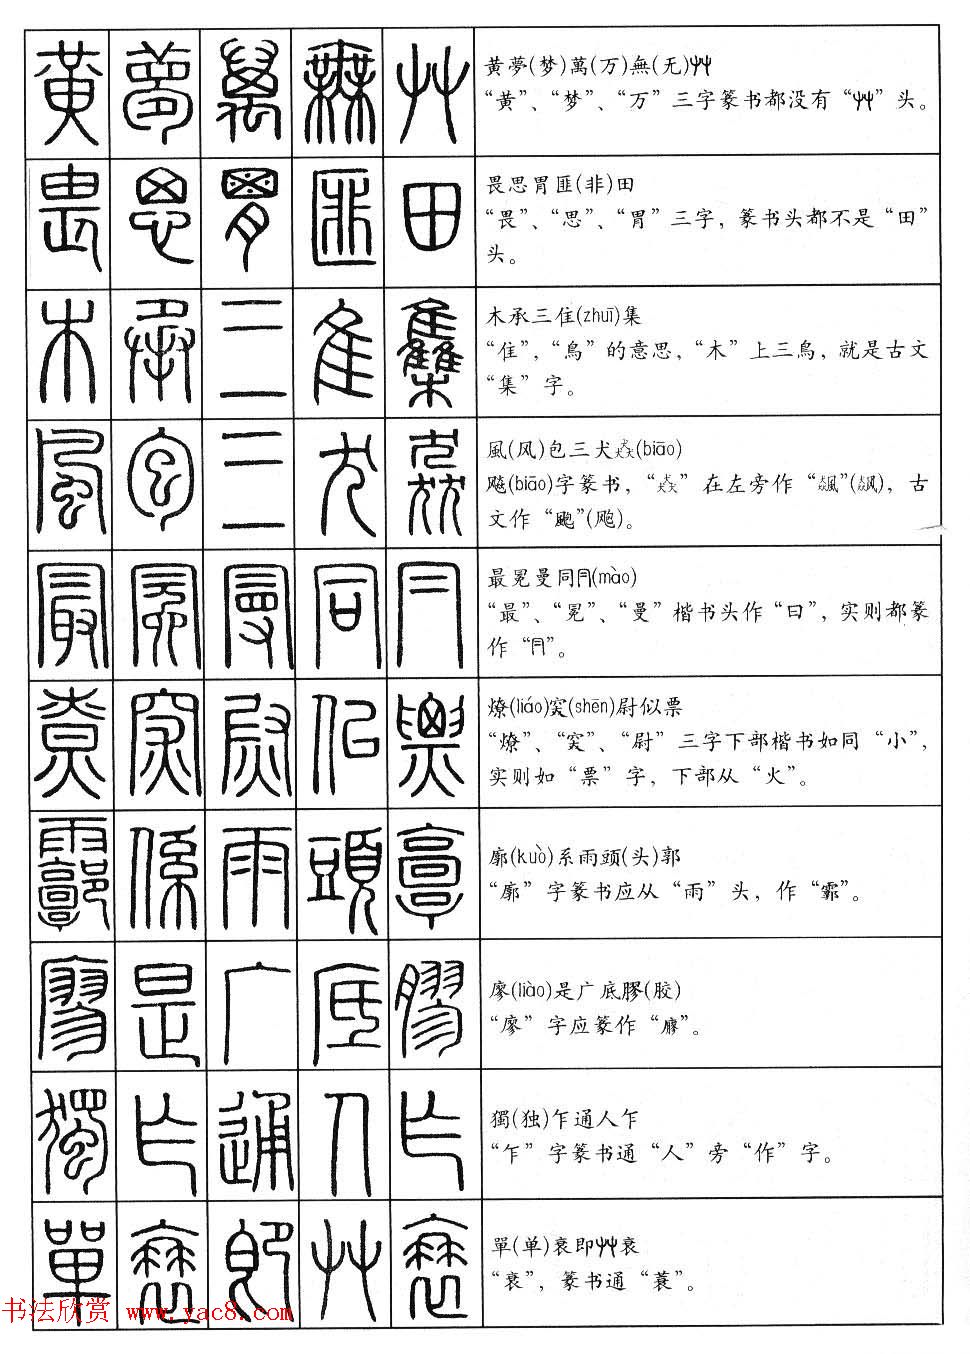 黄夢(梦)萬(万)無(无)艸
“黄”、“梦”、“万”三字篆书都没有“艸”头。
畏思胃匪(非)田
“畏”、“思”、“胃”三字，篆书头都不是“田”
头。
木承三隹(zhuī)集
“隹”，“鳥”的意思，“木”上三鳥，就是古文
“集”字。
風(风)包三犬猋(biāo)
飚(biāo)字篆书，“猋”在左旁作“飆”(飙)，古
文作“颮”(飑)。
最冕曼同冃(mào)
“最”、“冕”、“曼”楷书头作“曰”，实则都篆
作“冃”。
燎(liáo)突(shēn)尉似票
“燎”、“突”、“尉”三字下部楷书如同“小”，
实则如“票”字，下部从“火”。
廓(kuò)系雨頭(头)郭
“廓”字篆书应从“雨”头，作“霩”。
廖(liào)是广底膠(胶)
“廖”字应篆作“”。
獨(独)乍通人乍
“乍”字篆书通“人”旁“作”字。
單(单)衰即艸衰
“衰”，篆书通“蓑”。
书法欣赏 www.yac8.com